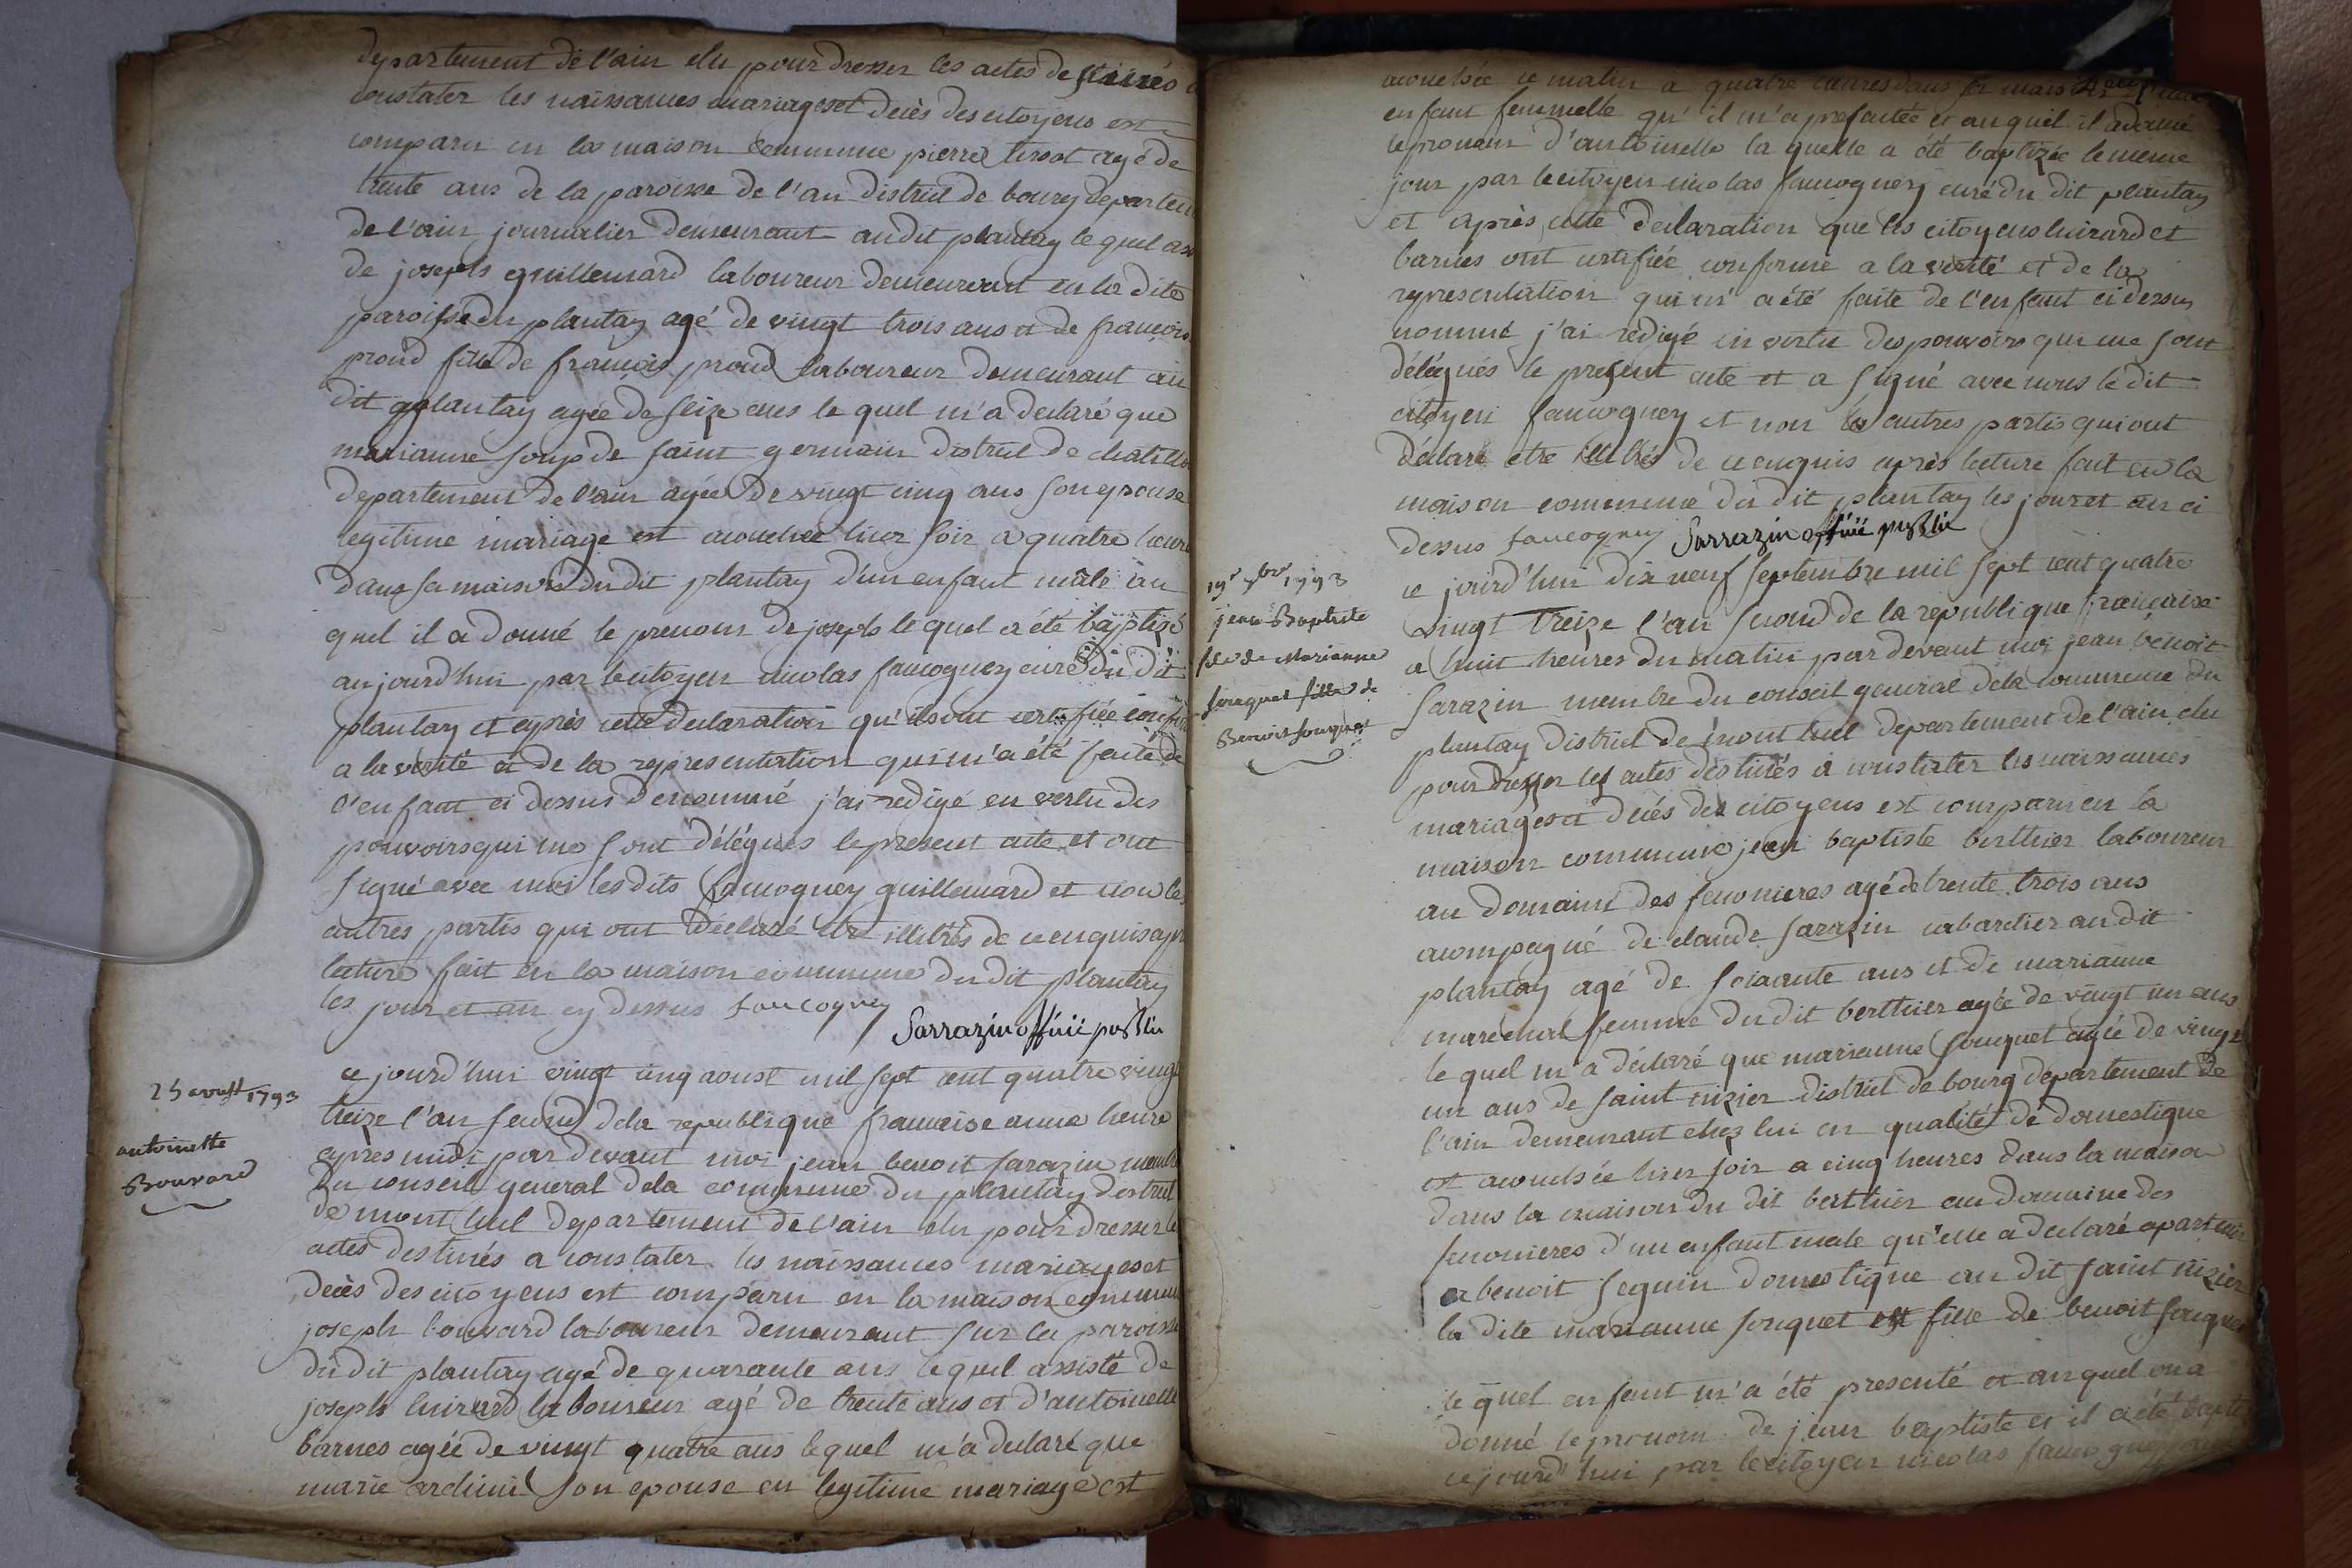 departement de l'ain elu pour dresser les actes destinés a
constater les naissances mariages et decès des citoyens est
comparu en la maison commune pierre tissot agé de
trente ans de la paroisse de l'an district de bourg departem
de l'ain journalier demeurant audit plantay le quel as
de joseph guillemard laboureur demeurant en la dite
paroisse du plantay agé de vingt trois ans et de françoise
proud fille de françois proud laboureur demeurant au
dit plantay agée de seize ans le quel m'a declaré que
marianne soup de saint germain district de chatillon
departement de l'ain agée de vingt cinq ans son epouse
legitime mariage est acouchee hier soir a quatre heure
dans sa maison du dit plantay d'un enfant mâle au
quel il a donné le prenom de joseph le quel a été baptizé
aujourd'hui par le citoyen nicolas faucogney curé du dit
plantay et après cette declaration qu'ils ont certifiée conf
a la verité et de la representation qui m'a été faite de
l'enfant ci dessus denommé j'ai redigé en vertu des
pouvoirs qui me sont délégués le present acte et ont
signé avec moi les dits faucogney guillemard et non les
autres partis qui ont déclaré etre illitrés de ce enquis apr
lecture fait en la maison commune du dit plantay
les jour et an cy dessus faucogney
Sarrazin officié publie
25 aoust 1793
antoinette
Bouvard
ce jourd'hui vingt cinq aoust mil sept cent quatre vingt
treize l'an second dela republique francaise a une heure
apres midi par devant moi jean benoit sarazin membre
du conseil general dela commune du plantay district
de mont luel departement de l'ain elu pour dresser le
actes destinés a constater les naissances mariages et
decès des citoyens est comparu en la maison commune
joseph bouvard laboureur demeurant sur la paroisse
du dit plantay agé de quarante ans lequel assisté de
joseph luirard laboureur agé de trente ans et d'antoinette
barnes agée de vingt quatre ans lequel m'a declaré que
marie son epouse en legitime mariage est
acouchée ce matin a quatre heures dans sa maison d'un
enfant femmelle qu'il m'a presentée et auquel il a donné
le prenom d'antoinette la quelle a été baptizée le meme
jour par le citoyen nicolas faucogney curé du dit plantay
et après cette declaration que les citoyens luirard et
barnes ont certifiée conforme a la verité et de la
representation qui m'a été faite de l'enfant ci dessus
nommé j'ai redigé en vertu des pouvoirs qui me sont
délégués le present acte et a signé avec nous le dit
citoyen faucogney et non les autres partis qui ont
déclaré etre illitrés de ce enquis après lecture fait en la
maison commune du dit plantay les jour et an ci
dessus faucogney Sarrazin officié publie
19e 7bre 1793
jean Baptiste
fils de Marianne
souquet fille de
Benoit souquet
ce jourd'hui dix neuf septembre mil sept cent quatre
vingt treize l'an second de la republique française
a huit heures du matin par devant moi jean benoit
sarazin membre du conseil general dela commune du
plantay district de mont luel departement de l'ain elu
pour dresser les actes destinés a constater les naissances
mariages et decés des citoyens est comparu en la
maison commune jean baptiste berthier laboureur
au domaine des fenonieres agé de trente trois ans
acompagné de claude sarazin cabaretier au dit
plantay agé de soixante ans et de marianne
marechal femme du dit berthier agée de vingt un ans
le quel m'a déclaré que marianne souquet agée de vingt
un ans de saint nizier district de bourg departement de
l'ain demeurant chez lui en qualité de domestique
est acouchée hier soir a cinq heures dans la maison
dans la maison du dit berthier au domaine des
fenonieres d'un enfant male qu'elle a declaré apartenir
a benoit seguin domestique au dit saint nizier
la dite marianne souquet est fille de benoit souquet
le quel enfant m'a été presenté et auquel on a
donné le prenom de jean baptiste et il a été baptizé
ce jourd'hui par le citoyen nicolas faucogney